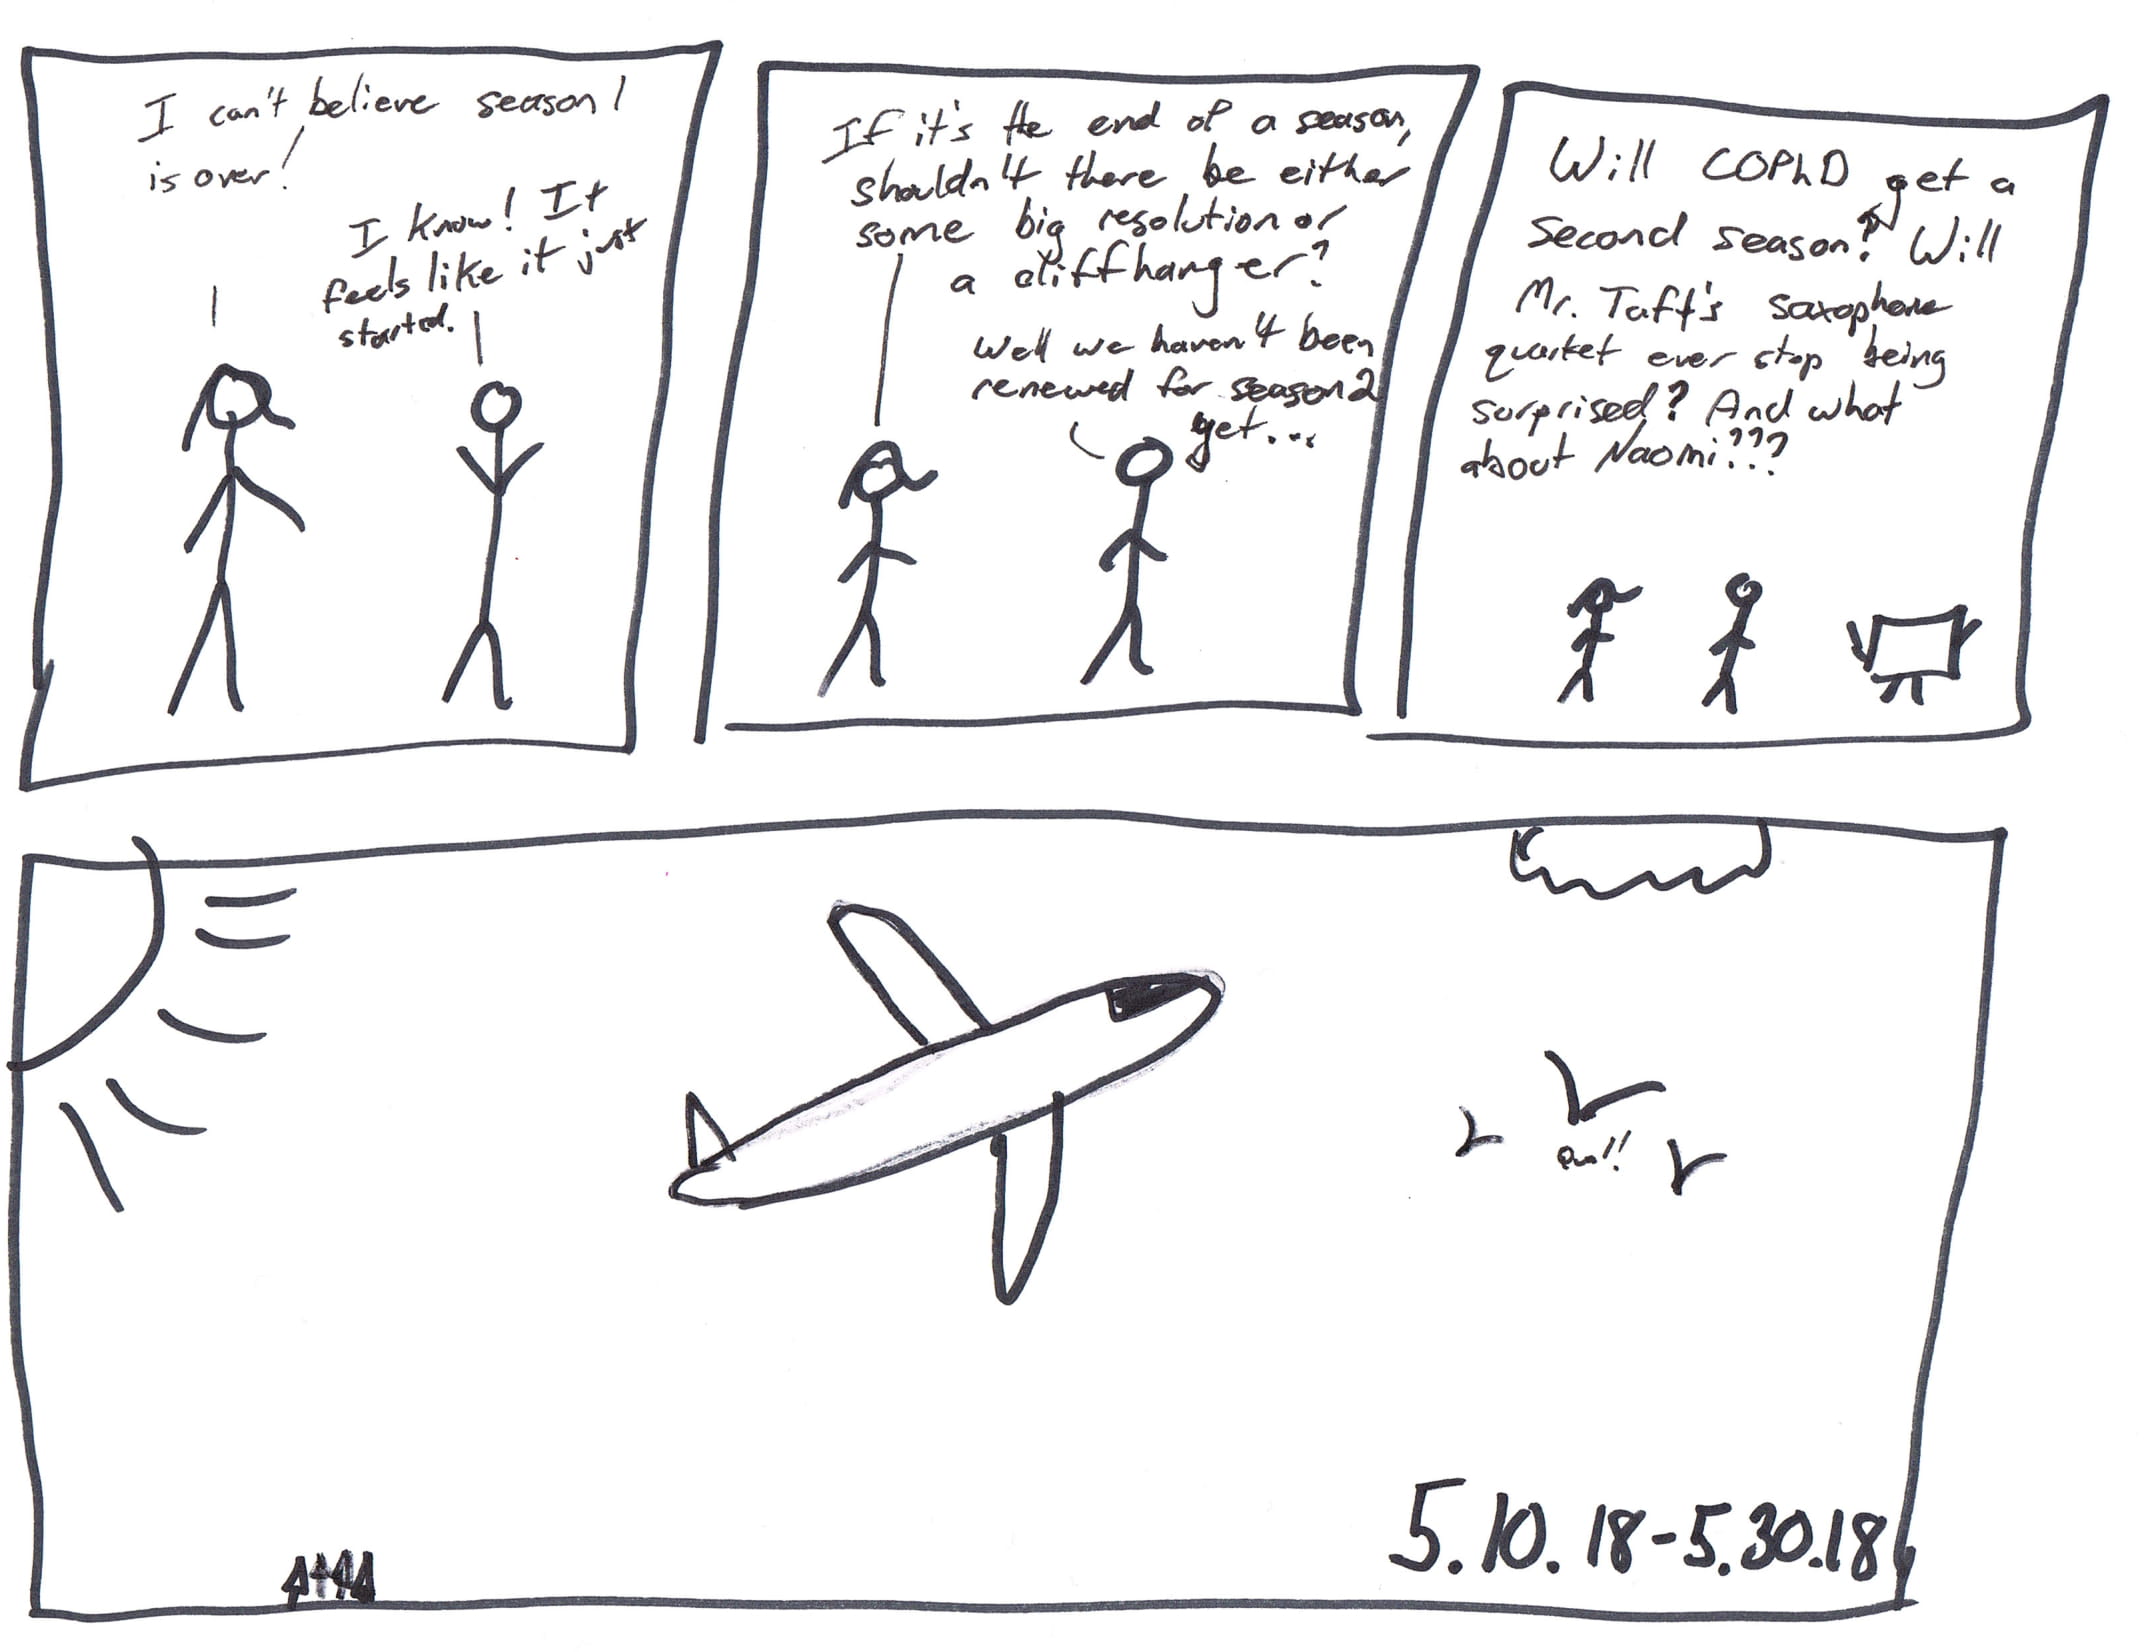 I can't believe season 1
is over!
I know! It
feels like it just
started.
If it's the end of a season,
shouldn't there be either
some big resolution or
a cliffhanger?
Well we haven't been
renewed for season 2
yet...
Will COPhD get a
second season? Will
Mr. Taft's saxophone
quartet ever stop being
surprised? And what
about Naomi???
5.10.18-5.30.18